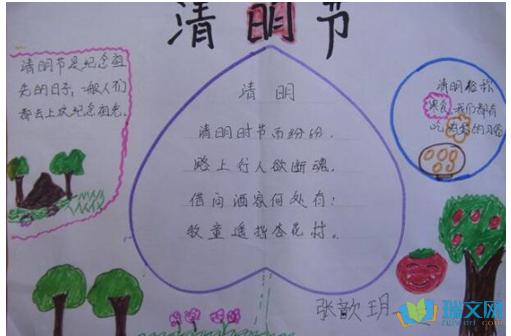 清明节
清明节是纪念祖
先的日子,一般人们
都去上坟纪念祖先.
清 明
清明时节雨纷纷.
路上行人欲断魂.
借问酒家何处有:
牧童遥指杏花村.
清明俗称
寒食.我们都有
吃的习俗
张歆玥
瑞文网